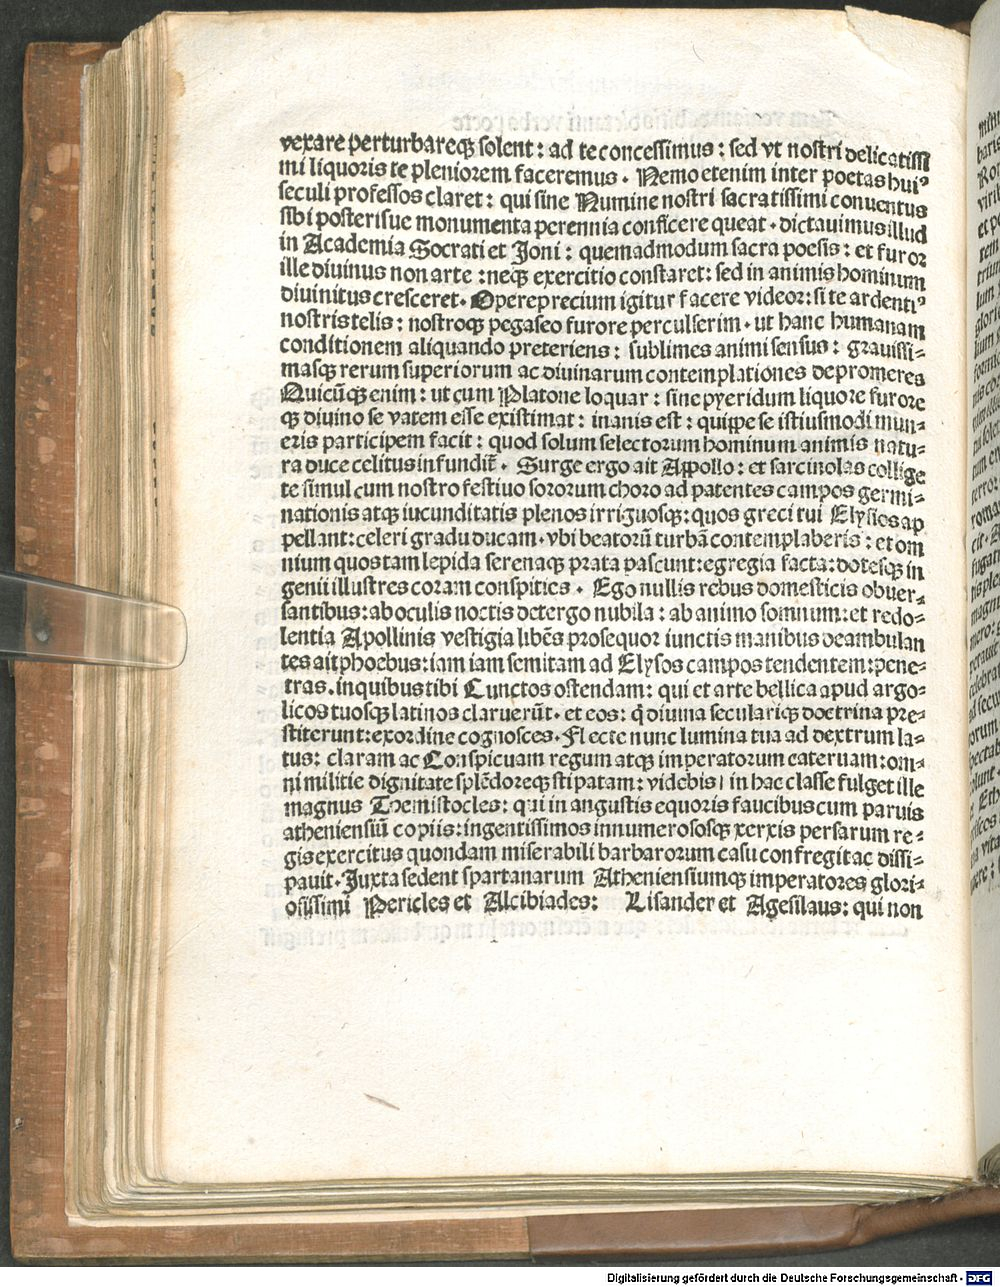 vexare perturbareqꝫ solent: ad te concessimus: sed vt nostri delicatissi
mi liquoris te pleniorem faceremus. Nemo etenim inter poetas huiꝰ
seculi professos claret: qui sine Numine nostri sacratissimi conuentus
sibi posterisue monumenta perennia conficere queat. dictauimus illud
in Academia Socrati et Joni: quemadmodum sacra poesis: et furor
ille diuinus non arte: neqꝫ exercitio constaret: sed in animis hominum
diuinitus cresceret. Opereprecium igitur facere videor: si te ardentiꝰ
nostris telis: nostroqꝫ pegaseo furore perculserim. ut hanc humanam
conditionem aliquando preteriens: sublimes animi sensus: grauissi-
masqꝫ rerum superiorum ac diuinarum contemplationes depromeres
Quicūqꝫ enim: ut cum Platone loquar: sine pyeridum liquore furore
qꝫ diuino se vatem esse existimat: inanis est: quippe se istiusmodi mun-
eris participem facit: quod solum selectorum hominum animis natu-
ra duce celitus infundit̄. Surge ergo ait Appollo: et sarcinolas collige
te simul cum nostro festiuo sororum choro ad patentes campos germi-
nationis atqꝫ iucunditatis plenos irriguosqꝫ: quos greci tui Elysios ap
pellant: celeri gradu ducam. vbi beatorū turbā contemplaberis: et om
nium quos tam lepida serenaqꝫ prata pascunt: egregia facta: dotesqꝫ in
genii illustres coram conspities. Ego nullis rebus domesticis obuer-
santibus: ab oculis noctis detergo nubila: ab animo somnium: et redo-
lentia Apollinis vestigia libēs prosequor iunctis manibus deambulan
tes ait phoebus: iam iam semitam ad Elysos campos tendentem: pene-
tras. in quibus tibi Cunctos ostendam: qui et arte bellica apud argo-
licos tuosqꝫ latinos claruerūt. et eos: q̄ diuina seculariqꝫ doctrina pre-
stiterunt: ex ordine cognosces. Flecte nunc lumina tua ad dextrum la-
tus: claram ac Conspicuam regum atqꝫ imperatorum cateruam: om-
ni militie dignitate splēdoreqꝫ stipatam: videbis/ in hac classe fulget ille
magnus Themistocles: qui in angustis equoris faucibus cum paruis
atheniensiū copiis: ingentissimos innumerososqꝫ xerxis persarum re-
gis exercitus quondam miserabili barbarorum casu confregit ac dissi-
pauit. Juxta sedent spartanarum Atheniensiumqꝫ imperatores glori-
osissimi Pericles et Alcibiades: Lisander et Agesilaus: qui non
Digitalisierung gefördert durch die Deutsche Forschungsgemeinschaft - DFG